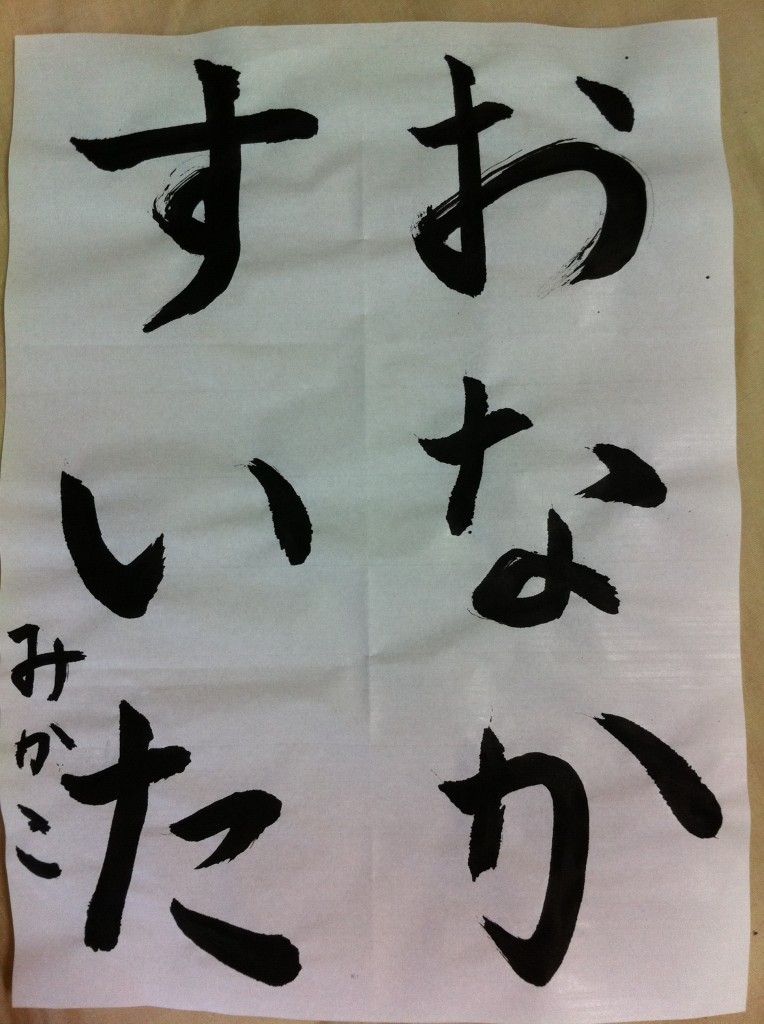 おなか
すいた
みかこ